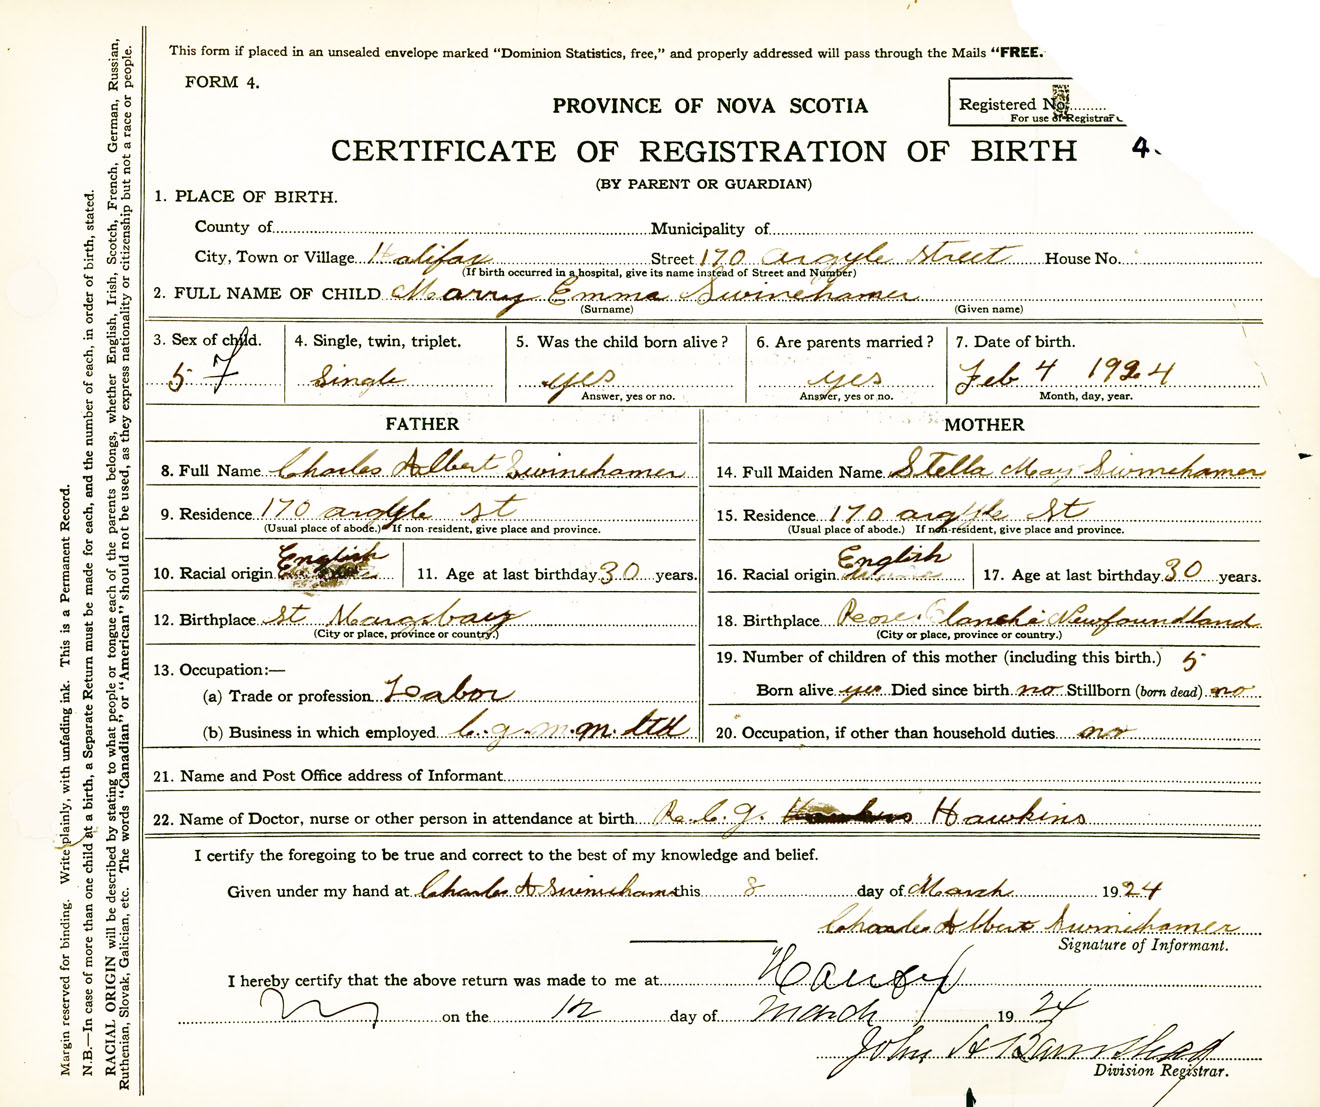 This form if placed in an unsealed envelope marked "Dominion Statistics, free," and properly addressed will pass through the Mails "FREE.
FORM 4.
PROVINCE OF NOVA SCOTIA
Registered No.
For use of Registrar
CERTIFICATE OF REGISTRATION OF BIRTH 4
(BY PARENT OR GUARDIAN)
1. PLACE OF BIRTH.
County of Municipality of
City, Town or Village Halifax Street 170 argyle Street House No.
(If birth occurred in a hospital, give its name instead of Street and Number)
2. FULL NAME OF CHILD Marry Emma Swinehamer
(Surname) (Given name)
3. Sex of child. 4. Single, twin, triplet. 5. Was the child born alive? 6. Are parents married? 7. Date of birth.
5 F Single yes yes Feb 4 1924
Answer, yes or no. Answer, yes or no. Month, day, year.
FATHER
8. Full Name Charles Albert Swinehamer
9. Residence 170 argyle st
(Usual place of abode.) If non-resident, give place and province.
10. Racial origin English 11. Age at last birthday 30 years.
12. Birthplace St Margsbay
(City or place, province or country.)
13. Occupation:—
(a) Trade or profession Labor
(b) Business in which employed C. g. m. m. Ltd
MOTHER
14. Full Maiden Name Stella May Swinehamer
15. Residence 170 argyle St
(Usual place of abode.) If non-resident, give place and province.
16. Racial origin English 17. Age at last birthday 30 years.
18. Birthplace Rose Blanche Newfoundland
(City or place, province or country.)
19. Number of children of this mother (including this birth.) 5
Born alive yes Died since birth no Stillborn (born dead) no
20. Occupation, if other than household duties no
21. Name and Post Office address of Informant
22. Name of Doctor, nurse or other person in attendance at birth R. C. G. Hawkins
I certify the foregoing to be true and correct to the best of my knowledge and belief.
Given under my hand at Charles A Swinehamer this 8 day of March 1924
Charles Albert Swinehamer
Signature of Informant.
I hereby certify that the above return was made to me at Halifax
on the 12 day of March 1924
John A Barnstead
Division Registrar.
Margin reserved for binding. Write plainly, with unfading ink. This is a Permanent Record.
N.B.—In case of more than one child at a birth, a Separate Return must be made for each, and the number of each, in order of birth, stated.
RACIAL ORIGIN will be described by stating to what people or tongue each of the parents belongs, whether English, Irish, Scotch, French, German, Russian,
Ruthenian, Slovak, Galician, etc. The words "Canadian" or "American" should not be used, as they express nationality or citizenship but not a race or people.